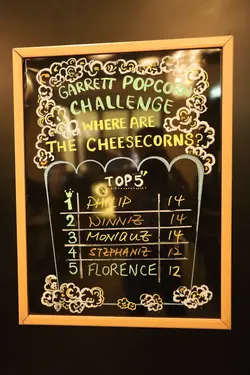 GARRETT POPCORN
CHALLENGE
WHERE ARE
THE CHEESECORNS?
TOP 5
1 PHILIP 14
2 WINNIE 14
3 MONIQUE 14
4 STEPHANIE 12
5 FLORENCE 12